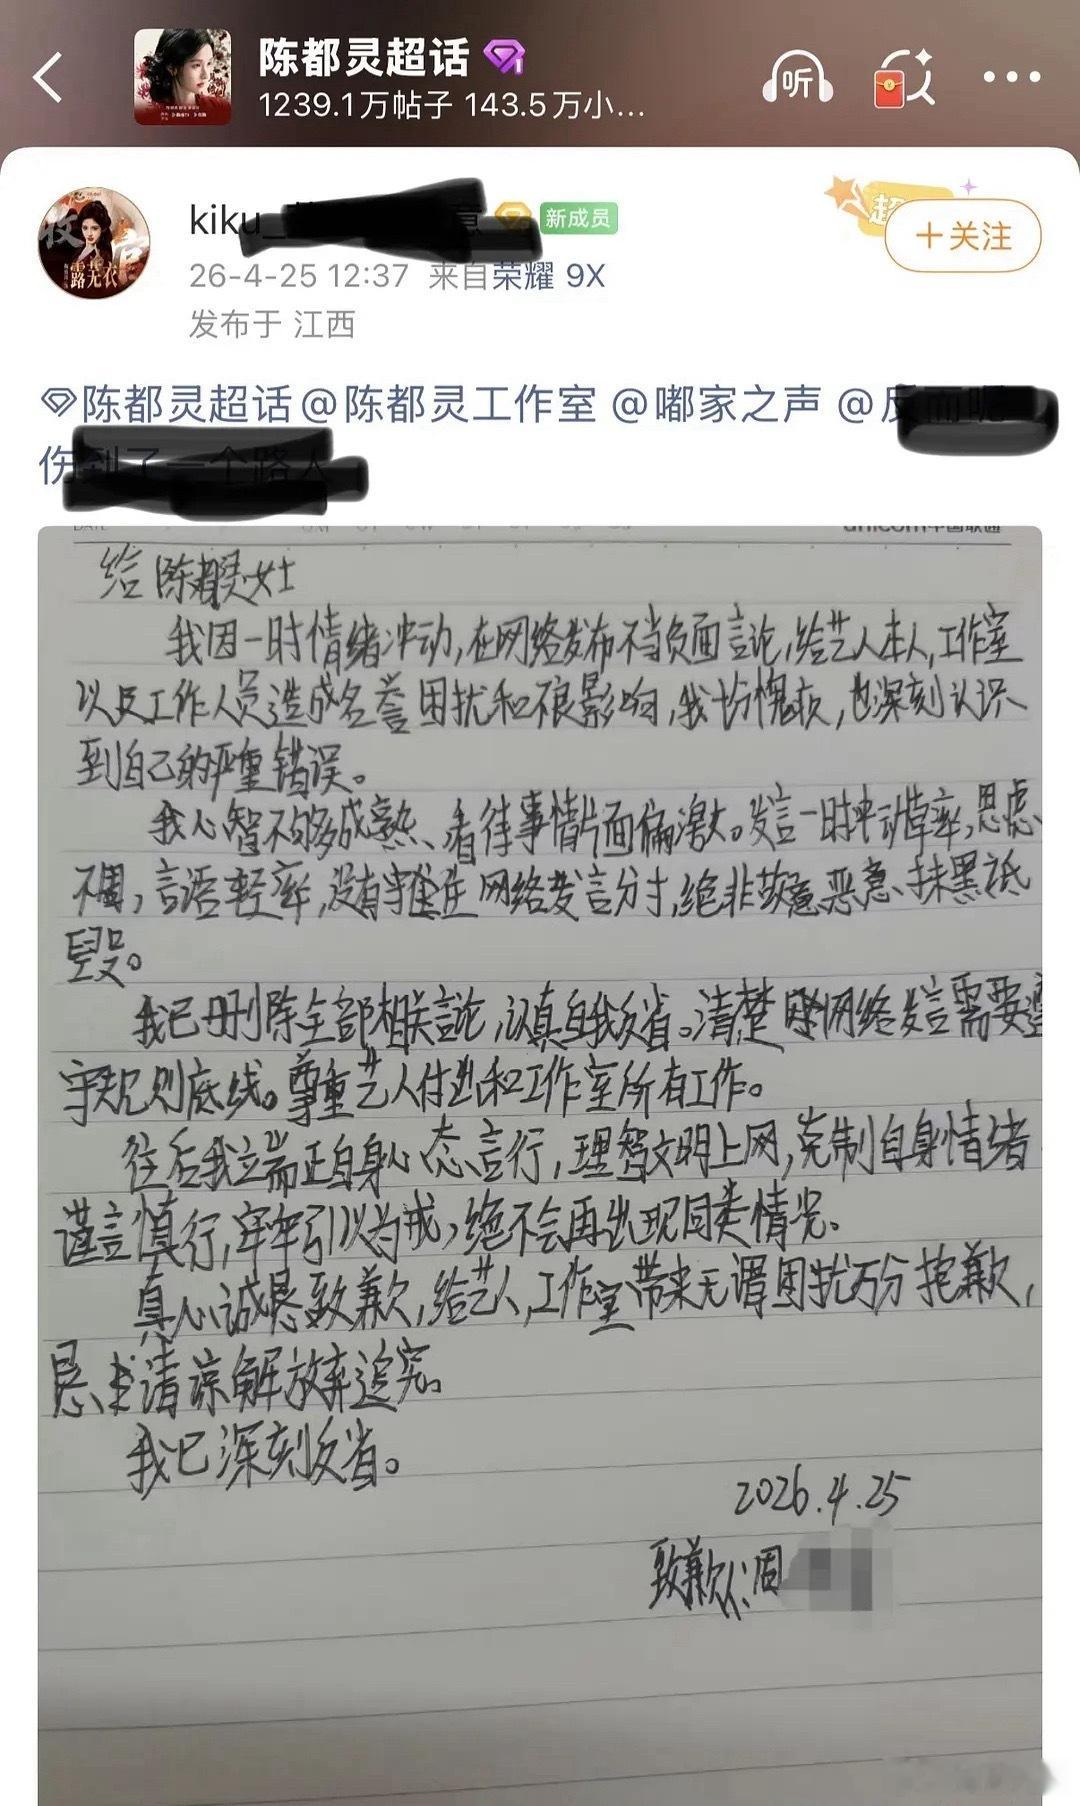 陈都灵超话
1239.1万帖子 143.5万小...
听
kiku_
新成员
超
+关注
26-4-25 12:37 来自荣耀 9X
发布于 江西
陈都灵超话@陈都灵工作室 @嘟家之声 @反
伤到了一个路人
收官
露芜衣
unicom中国联通
给陈都灵女士
我因一时情绪冲动,在网络发布不当负面言论,给艺人本人,工作室
以及工作人员造成名誉困扰和不良影响,我十分愧疚,也深刻认识
到自己的严重错误。
我心智不够成熟、看待事情片面偏激。发言一时冲动草率,思虑
不周,言语轻率,没有守住网络发言分寸,绝非故意恶意、抹黑诋
毁。
我已删除全部相关言论,认真自我反省。清楚网络发言需要遵
守规则底线。尊重艺人付出和工作室所有工作。
往后我立端正自身心态言行,理智文明上网,克制自身情绪
谨言慎行,牢牢引以为戒,绝不会再出现同类情况。
真心诚恳致歉,给艺人,工作室带来无谓困扰万分抱歉,
恳求请谅解放弃追究。
我已深刻反省。
2026.4.25
致歉人:周